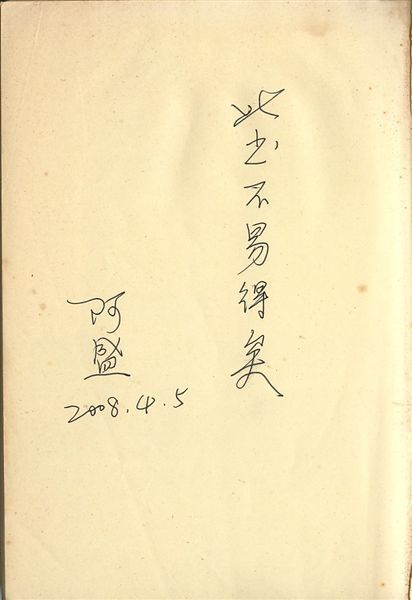 此书不易得矣
阿盛
2008.4.5